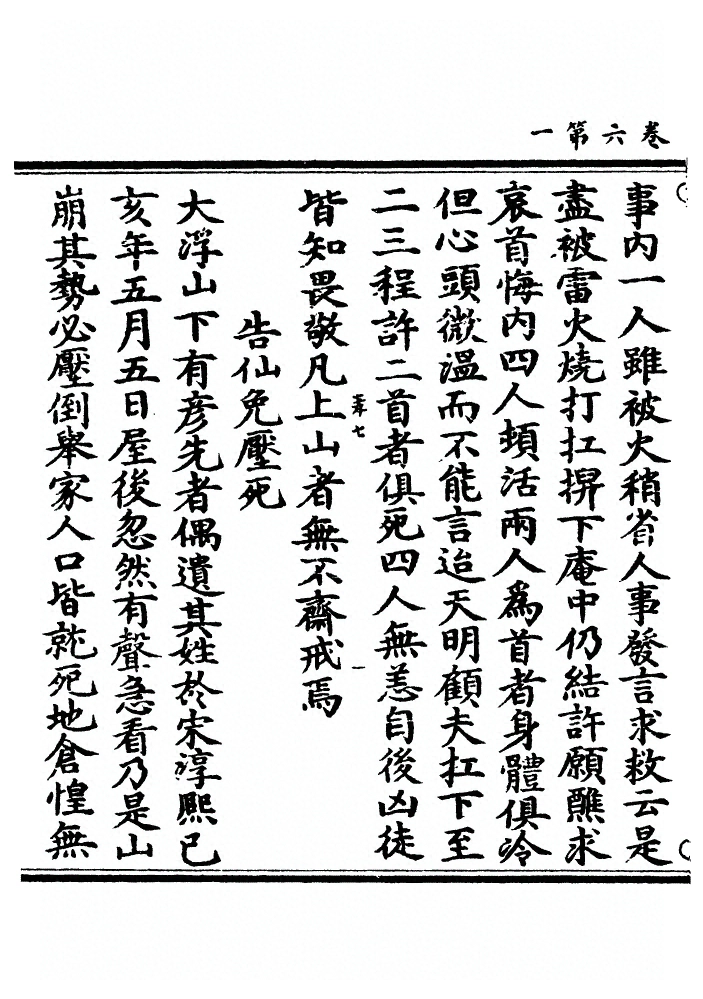 卷六第一
事內一人雖被火稍省人事發言求救云是
盡被雷火燒打扛擡下庵中仍結許願醮求
哀首悔內四人頓活兩人爲首者身體俱冷
但心頭微溫而不能言迨天明顧夫扛下至
二三程許二首者俱死四人無恙自後凶徒
皆知畏敬凡上山者無不齋戒焉
告仙免壓死
大浮山下有彥先者偶遺其姓於宋淳熙己
亥年五月五日屋後忽然有聲急看乃是山
崩其勢必壓倒舉家人口皆就死地倉惶無